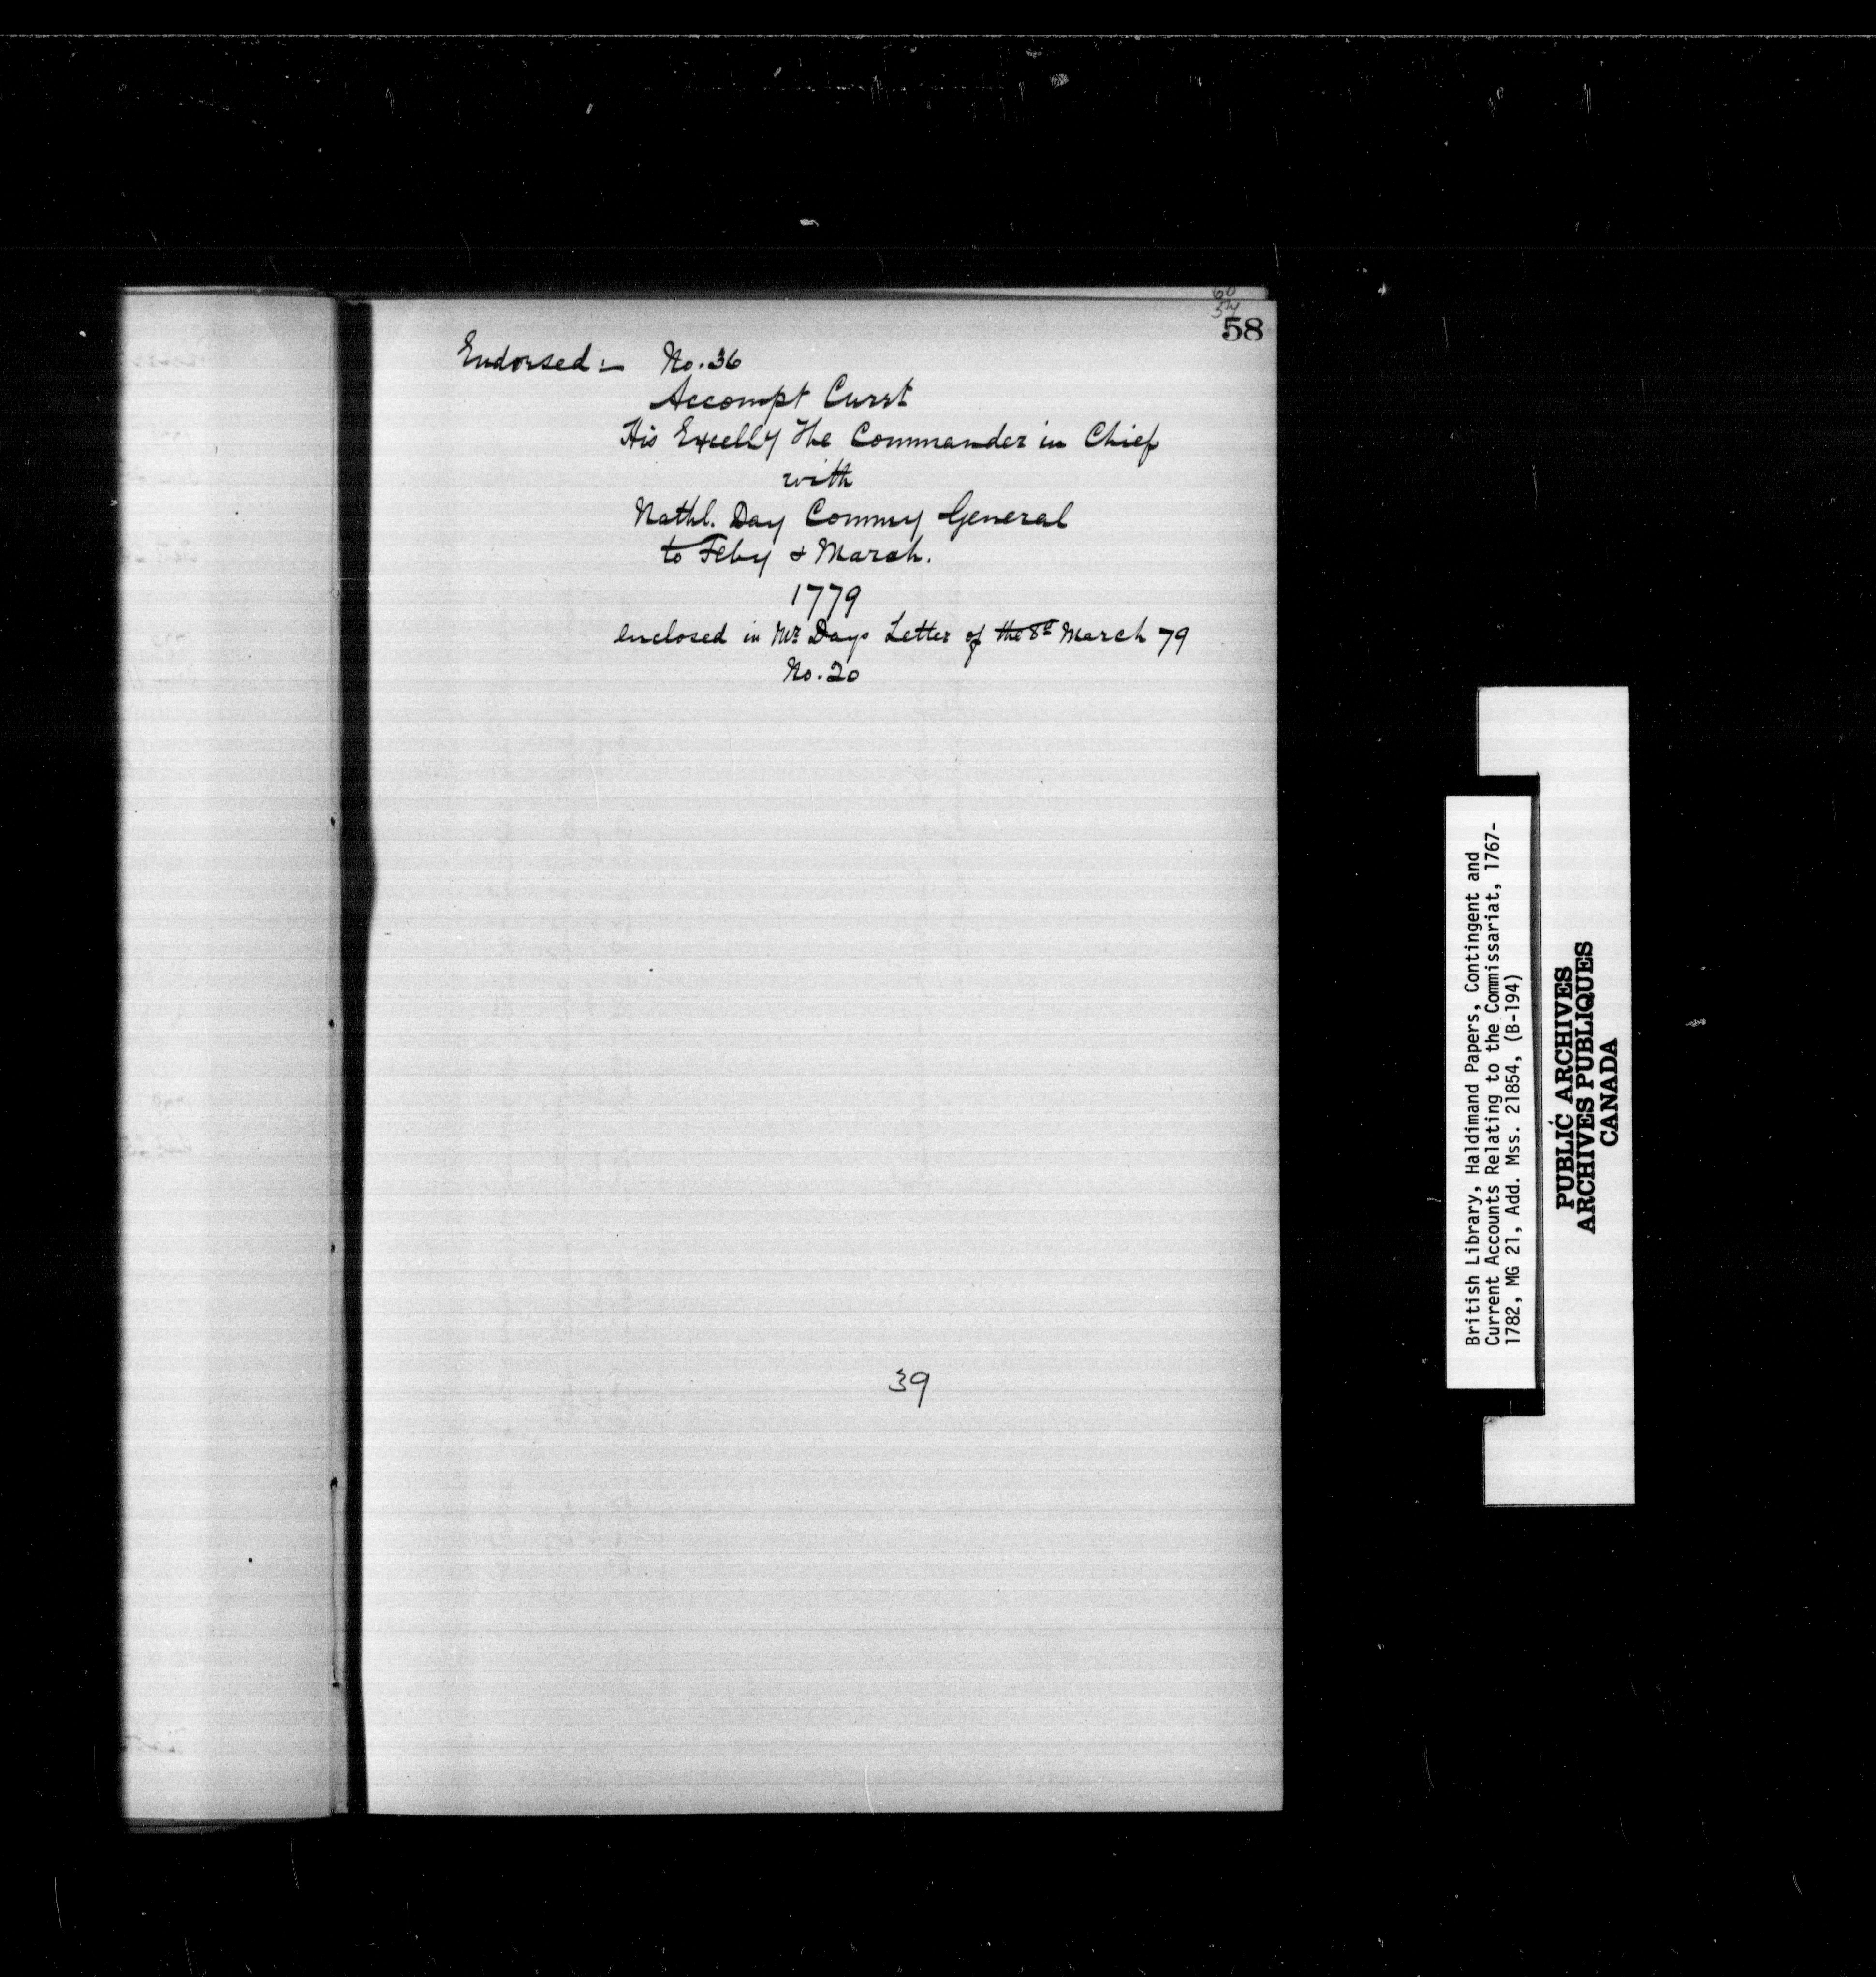 60
57
58
Endorsed:— No. 36
Accompt Currt
His Excelly The Commander in Chief
with
Nathl. Day Commy General
to Feby & March.
1779
enclosed in Mr Days Letter of the 8th March 79
No. 20
39
British Library, Haldimand Papers, Contingent and
Current Accounts Relating to the Commissariat, 1767-
1782, MG 21, Add. Mss. 21854, (B-194)
PUBLIC ARCHIVES
ARCHIVES PUBLIQUES
CANADA